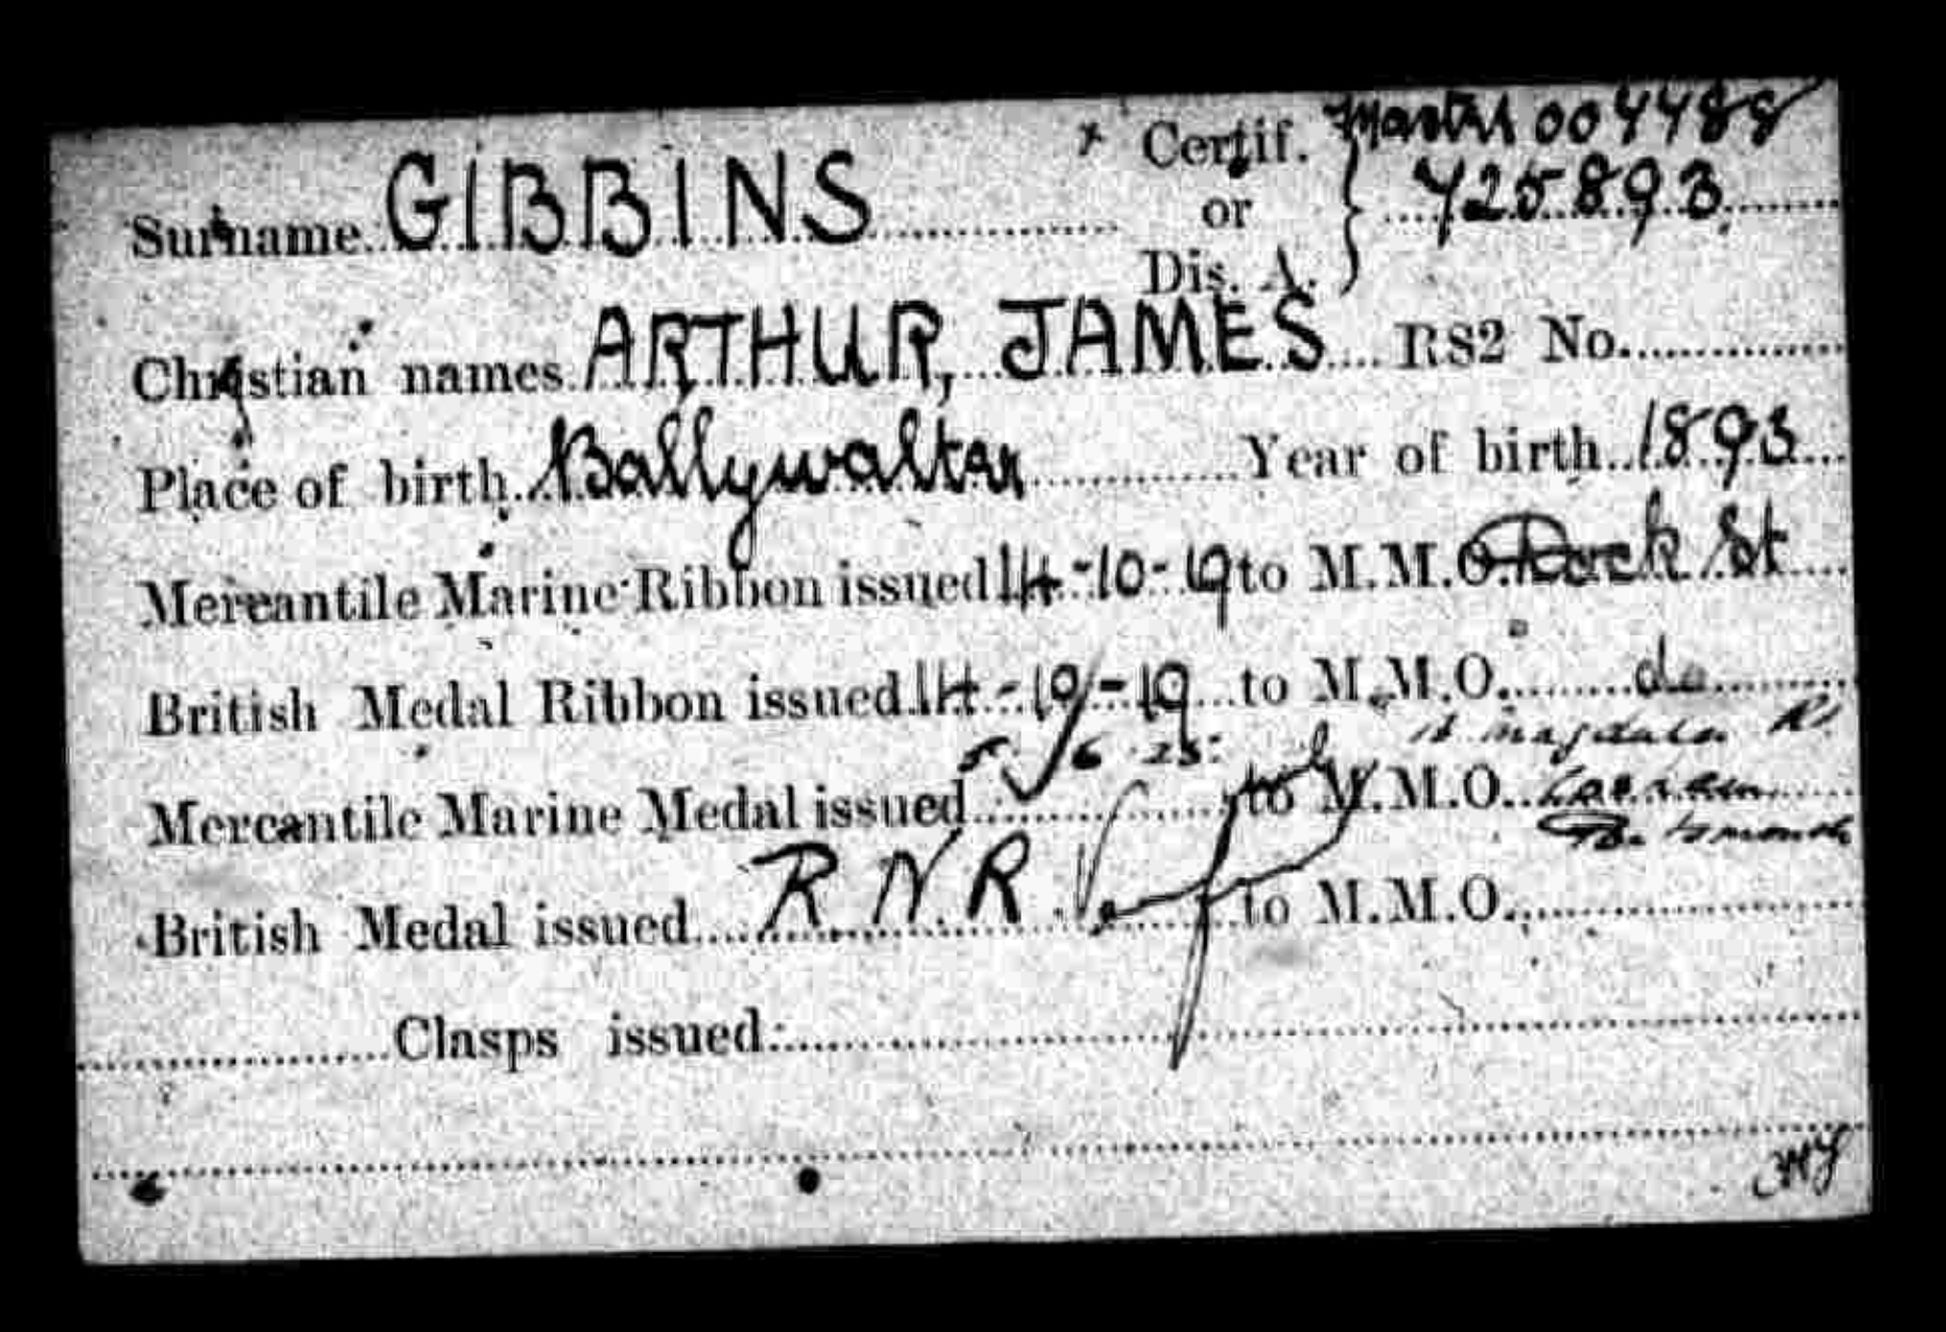 Certif. Master 004488
Surname GIBBINS or } 725893
Dis. A.
Christian names ARTHUR, JAMES RS2 No.
Place of birth Ballywalter Year of birth 1893
Mercantile Marine Ribbon issued 14-10-19 to M.M.O. Dock St
British Medal Ribbon issued 14-10-19 to M.M.O. do
5 6 25 Magdala Rd
Mercantile Marine Medal issued to M.M.O. Cosham
British Medal issued R.N.R. to M.M.O.
Clasps issued: